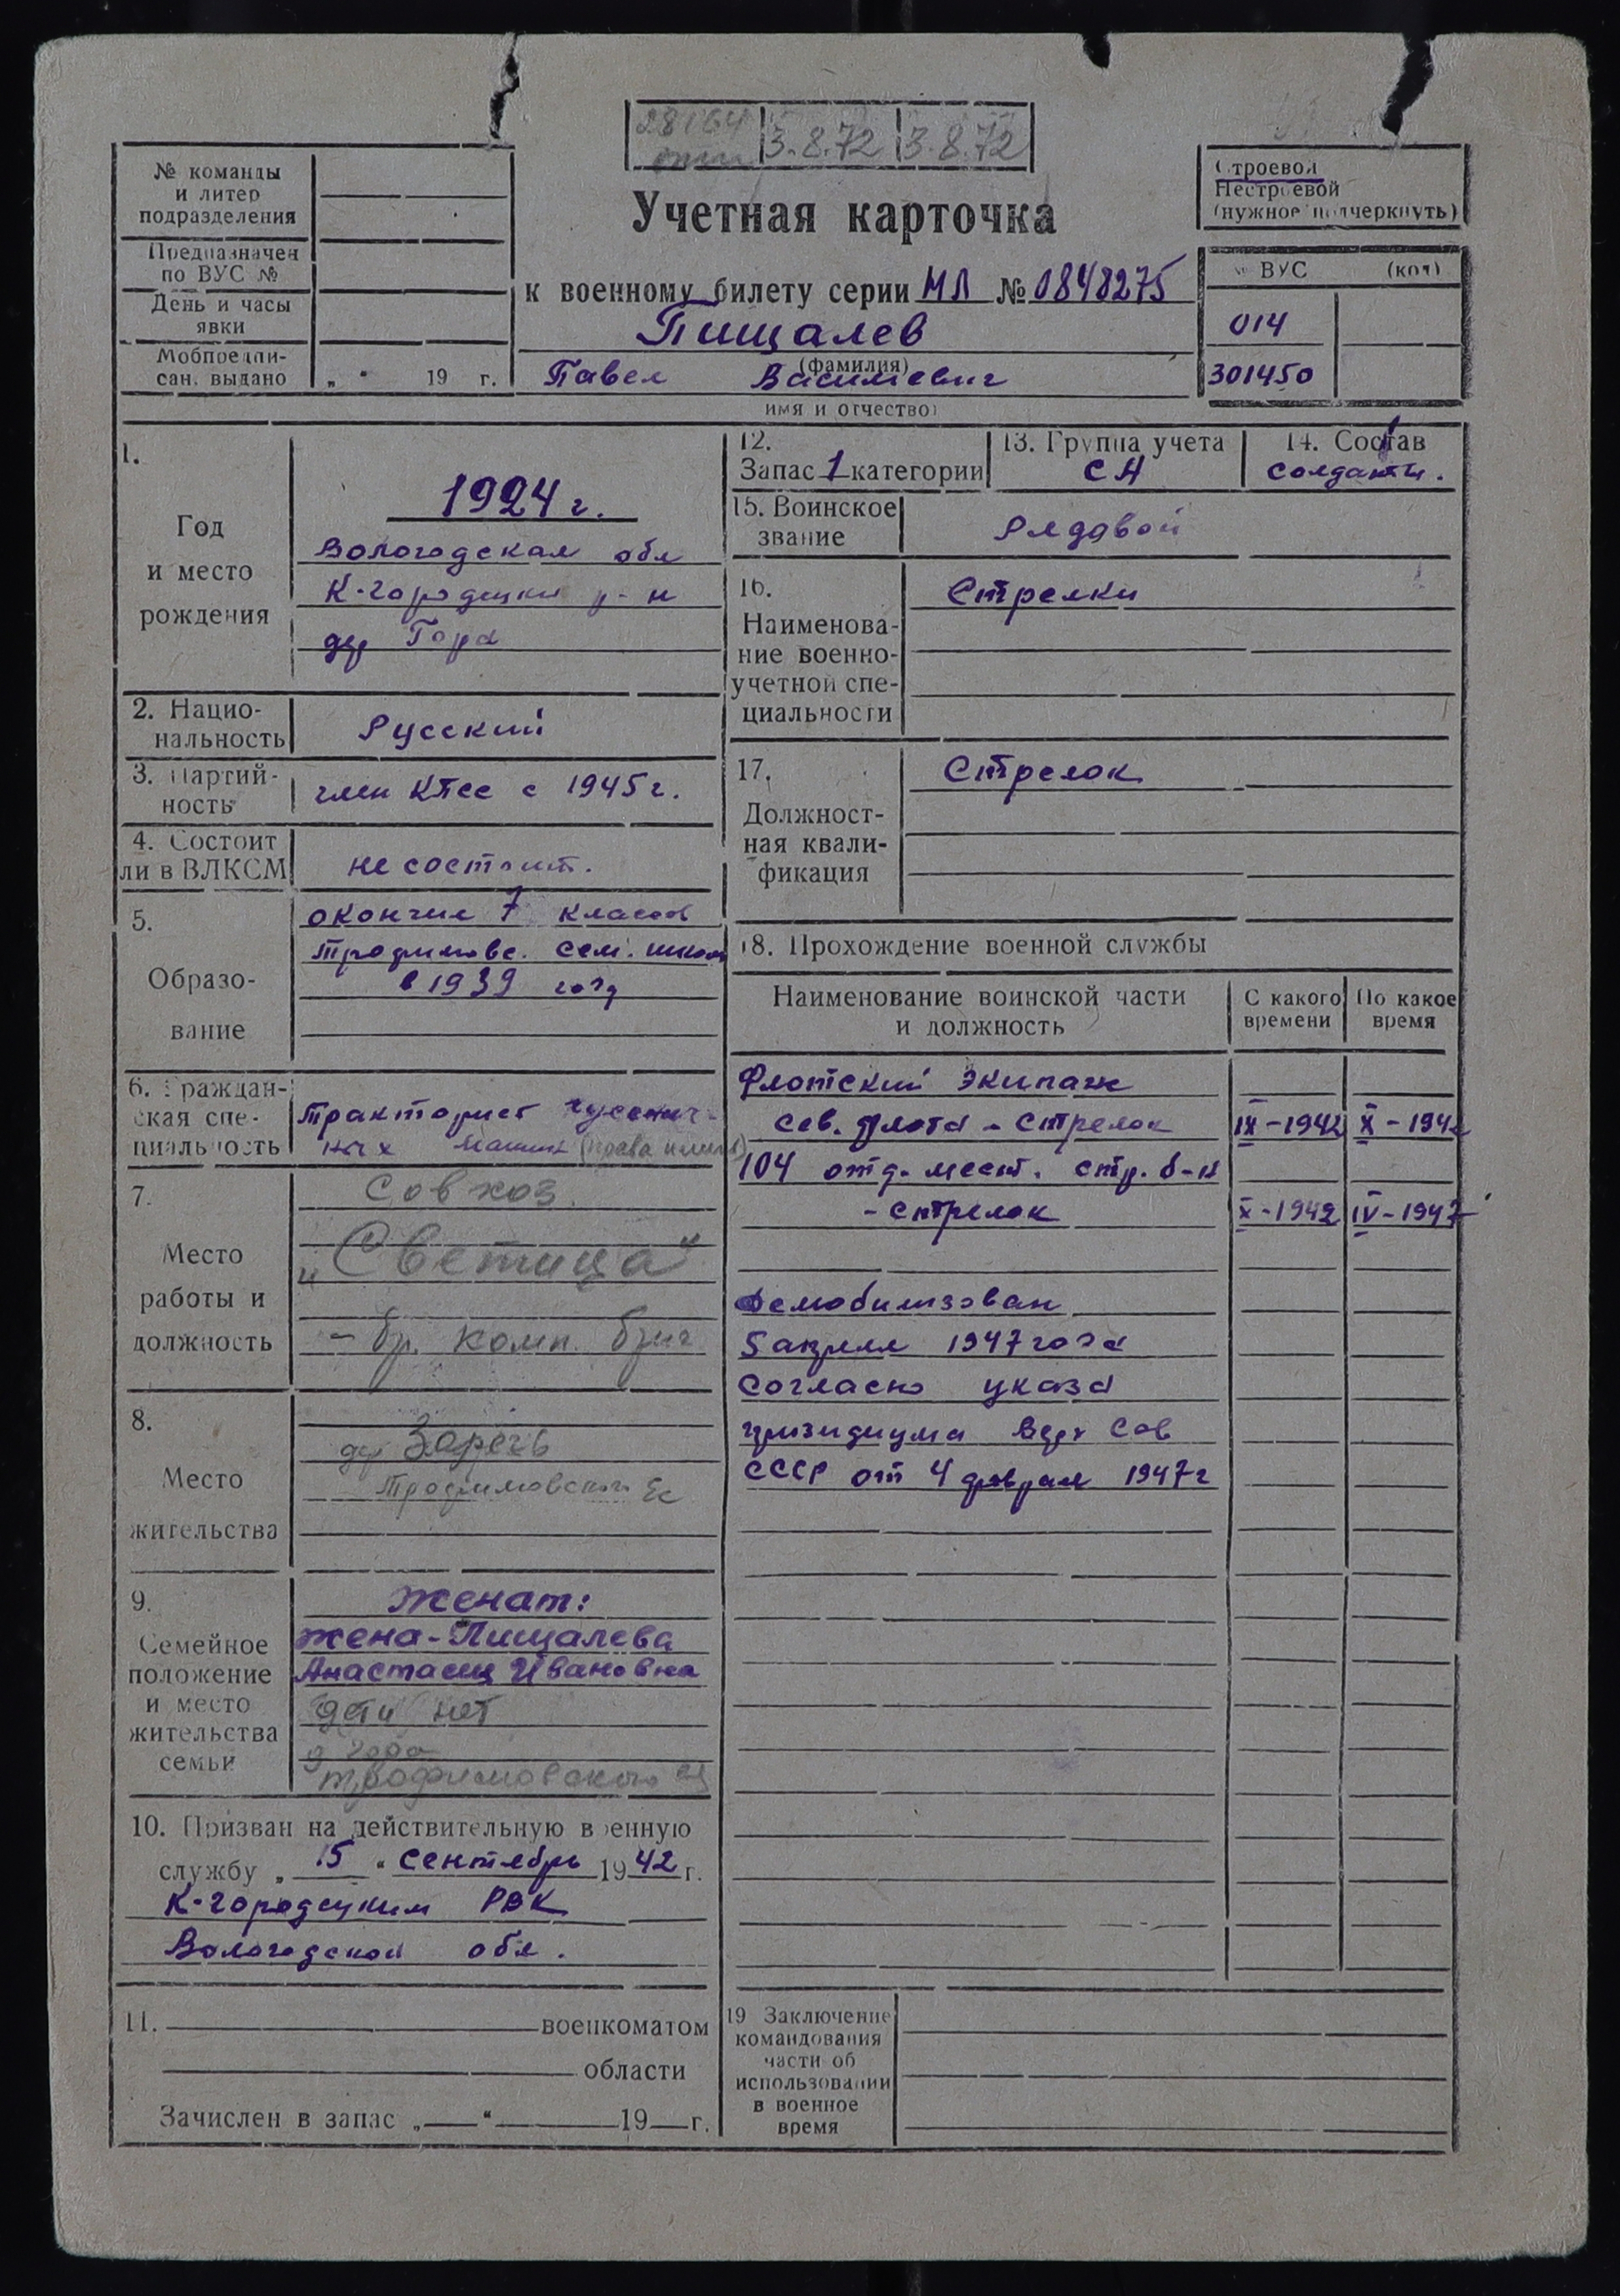 28164 3.8.72 3.8.72
№ команды
и литер
подразделения
Предназначен
по ВУС №
День и часы
явки
Мобпредпи-
сан. выдано „ “ 19 г.
Учетная карточка
к военному билету серии МЛ № 0848275
Пищалев
(фамилия)
Павел Васильевич
имя и отчество)
Строевой
Нестроевой
(нужное подчеркнуть)
№ ВУС (код)
014
301450
1.
Год
и место
рождения
1924 г.
Вологодская обл
К-городецкий р-н
дер Гора
2. Нацио-
нальность
Русский
3. Партий-
ность
член КПСС с 1945 г.
4. Состоит
ли в ВЛКСМ
не состоит.
5.
Образо-
вание
окончил 7 классов
Трофимовс. сем. школ
в 1939 году
6. Граждан-
ская спе-
циальность
Тракторист гусенич-
ных машин (права
7.
Место
работы и
должность
Совхоз
„Светица“
- бр. комп. бриг
8.
Место
жительства
дер Заречь
Трофимовский
9.
Семейное
положение
и место
жительства
семьи
Женат:
жена-Пищалева
Анастасия Ивановна
дети нет
д Гора
Трофимовского
10. Призван на действительную военную
службу „ 15 “ сентябрь 1942 г.
К-городецким РВК
Вологодской обл.
11. военкоматом
области
Зачислен в запас „ “ 19 г.
12.
Запас 1 категории
13. Группа учета
СА
14. Состав
солдаты.
15. Воинское
звание
Рядовой
16.
Наименова-
ние военно-
учетной спе-
циальности
Стрелки
17.
Должност-
ная квали-
фикация
Стрелок
18. Прохождение военной службы
Наименование воинской части
и должность
С какого
времени
По какое
время
Флотский экипаж
сев. флота - стрелок IX-1942 X-1942
104 отд. мест. стр. б-н
- стрелок X-1942 IV-1947
Демобилизован
5 апреля 1947 года
согласно указа
призидиума Верх Сов
СССР от 4 февраля 1947 г
19 Заключение
командования
части об
использовании
в военное
время